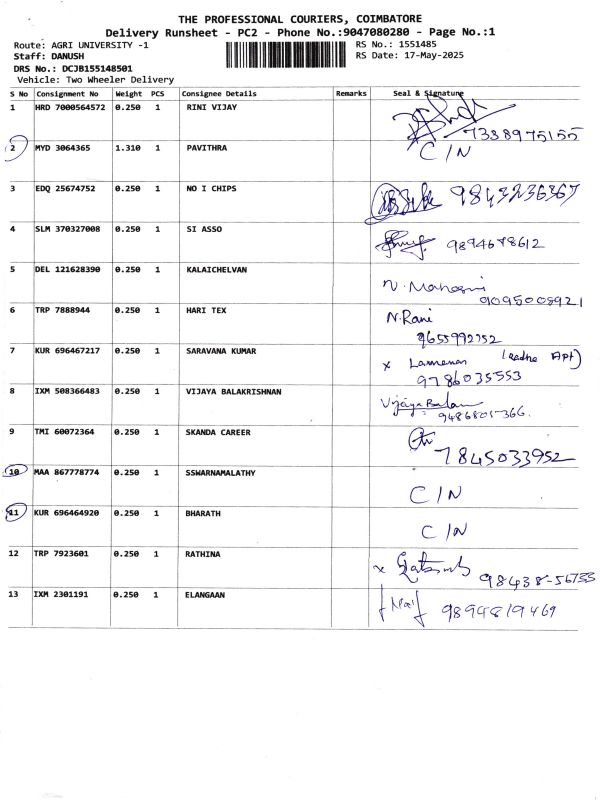 THE PROFESSIONAL COURIERS, COIMBATORE
Delivery Runsheet - PC2 - Phone No.:9047080280 - Page No.:1
Route: AGRI UNIVERSITY -1
RS No.: 1551485
Staff: DANUSH
RS Date: 17-May-2025
DRS No.: DCJB155148501
Vehicle: Two Wheeler Delivery
S No Consignment No Weight PCS Consignee Details Remarks Seal & Signature
1 HRD 7000564572 0.250 1 RINI VIJAY
7338975155
2 MYD 3064365 1.310 1 PAVITHRA C/N
3 EDQ 25674752 0.250 1 NO I CHIPS 9843236367
4 SLM 370327008 0.250 1 SI ASSO
9894678612
5 DEL 121628390 0.250 1 KALAICHELVAN
9095008921
6 TRP 7888944 0.250 1 HARI TEX N.Rani
9655992752
7 KUR 696467217 0.250 1 SARAVANA KUMAR x
9786035553
8 IXM 508366483 0.250 1 VIJAYA BALAKRISHNAN
9486801-366.
9 TMI 60072364 0.250 1 SKANDA CAREER
7845033952
10 MAA 867778774 0.250 1 SSWARNAMALATHY
C/N
11 KUR 696464920 0.250 1 BHARATH
C/N
12 TRP 7923601 0.250 1 RATHINA x
98438-56755
13 IXM 2301191 0.250 1 ELANGAAN
9894819469